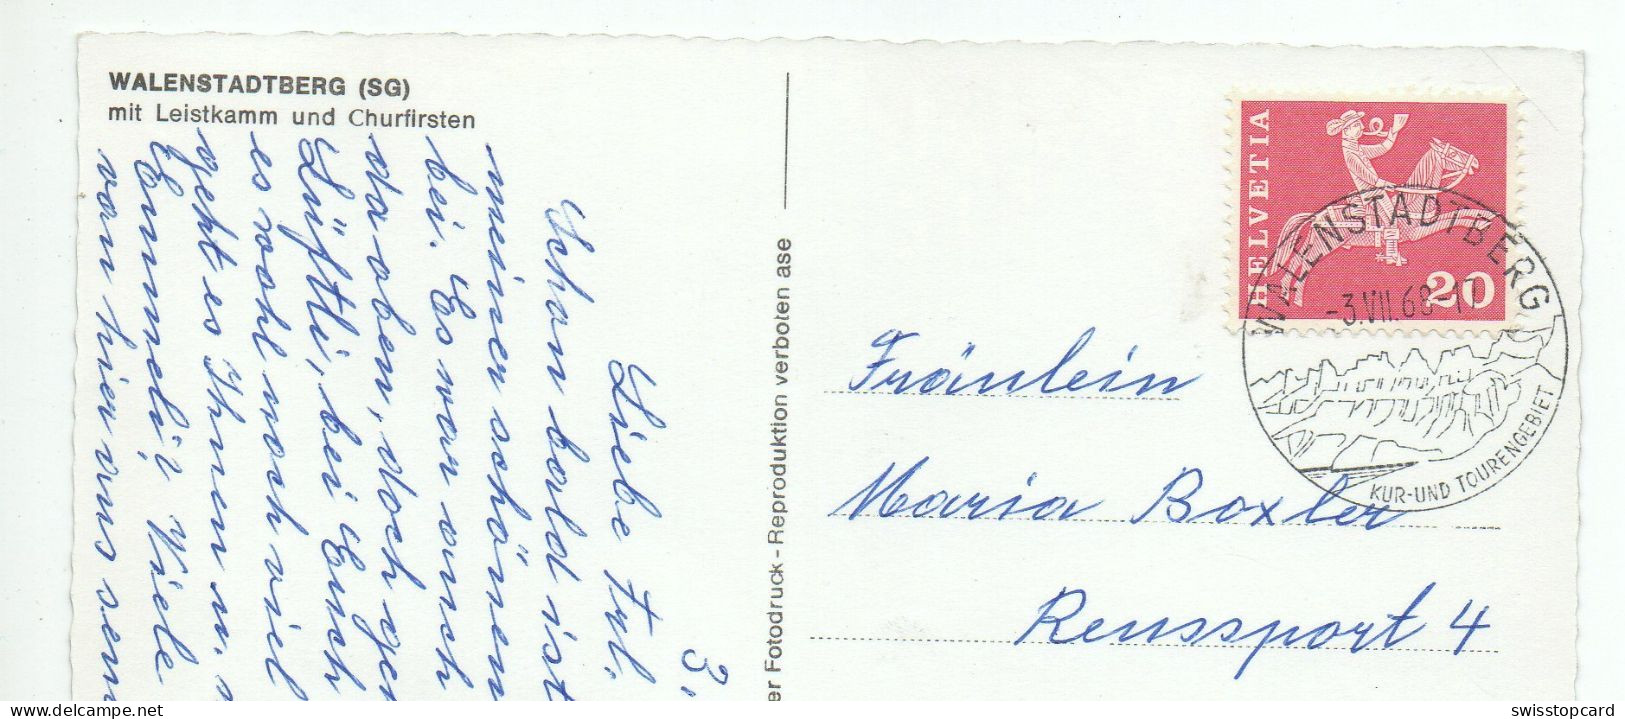 WALENSTADTBERG (SG)
mit Leistkamm und Churfirsten
HELVETIA
20
WALENSTADTBERG
-3.VII.68-17
KUR-UND TOURENGEBIET
er Fotodruck - Reproduktion verboten ase
Fräulein
Maria Boxler
Reussport 4
3.
Liebe Frl.
Schon bald ist
meiner schönen
bei. Es war auch
da oben, doch
Lüftli, bei Euch
es wohl noch viel
geht es Ihnen
Emmeli? Viele
von hier aus
www.delcampe.net
swisstopcard